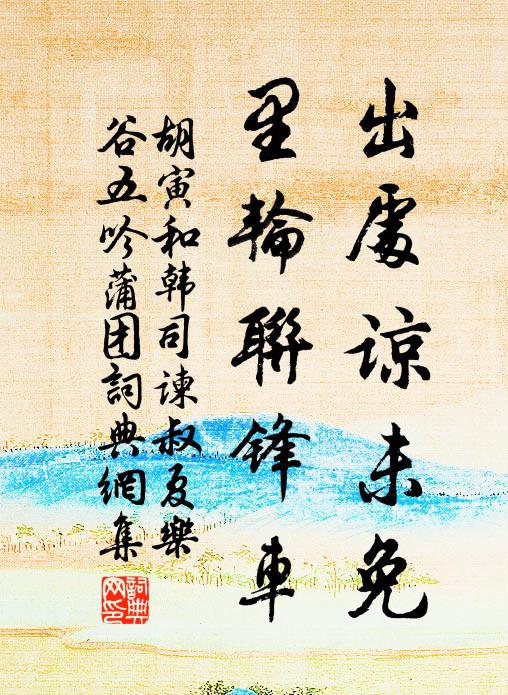 出處谅未免
里輪聯锋車
胡寅和韩司谏叔夏樂
谷五吟蒲团詞典網集
詞典網印